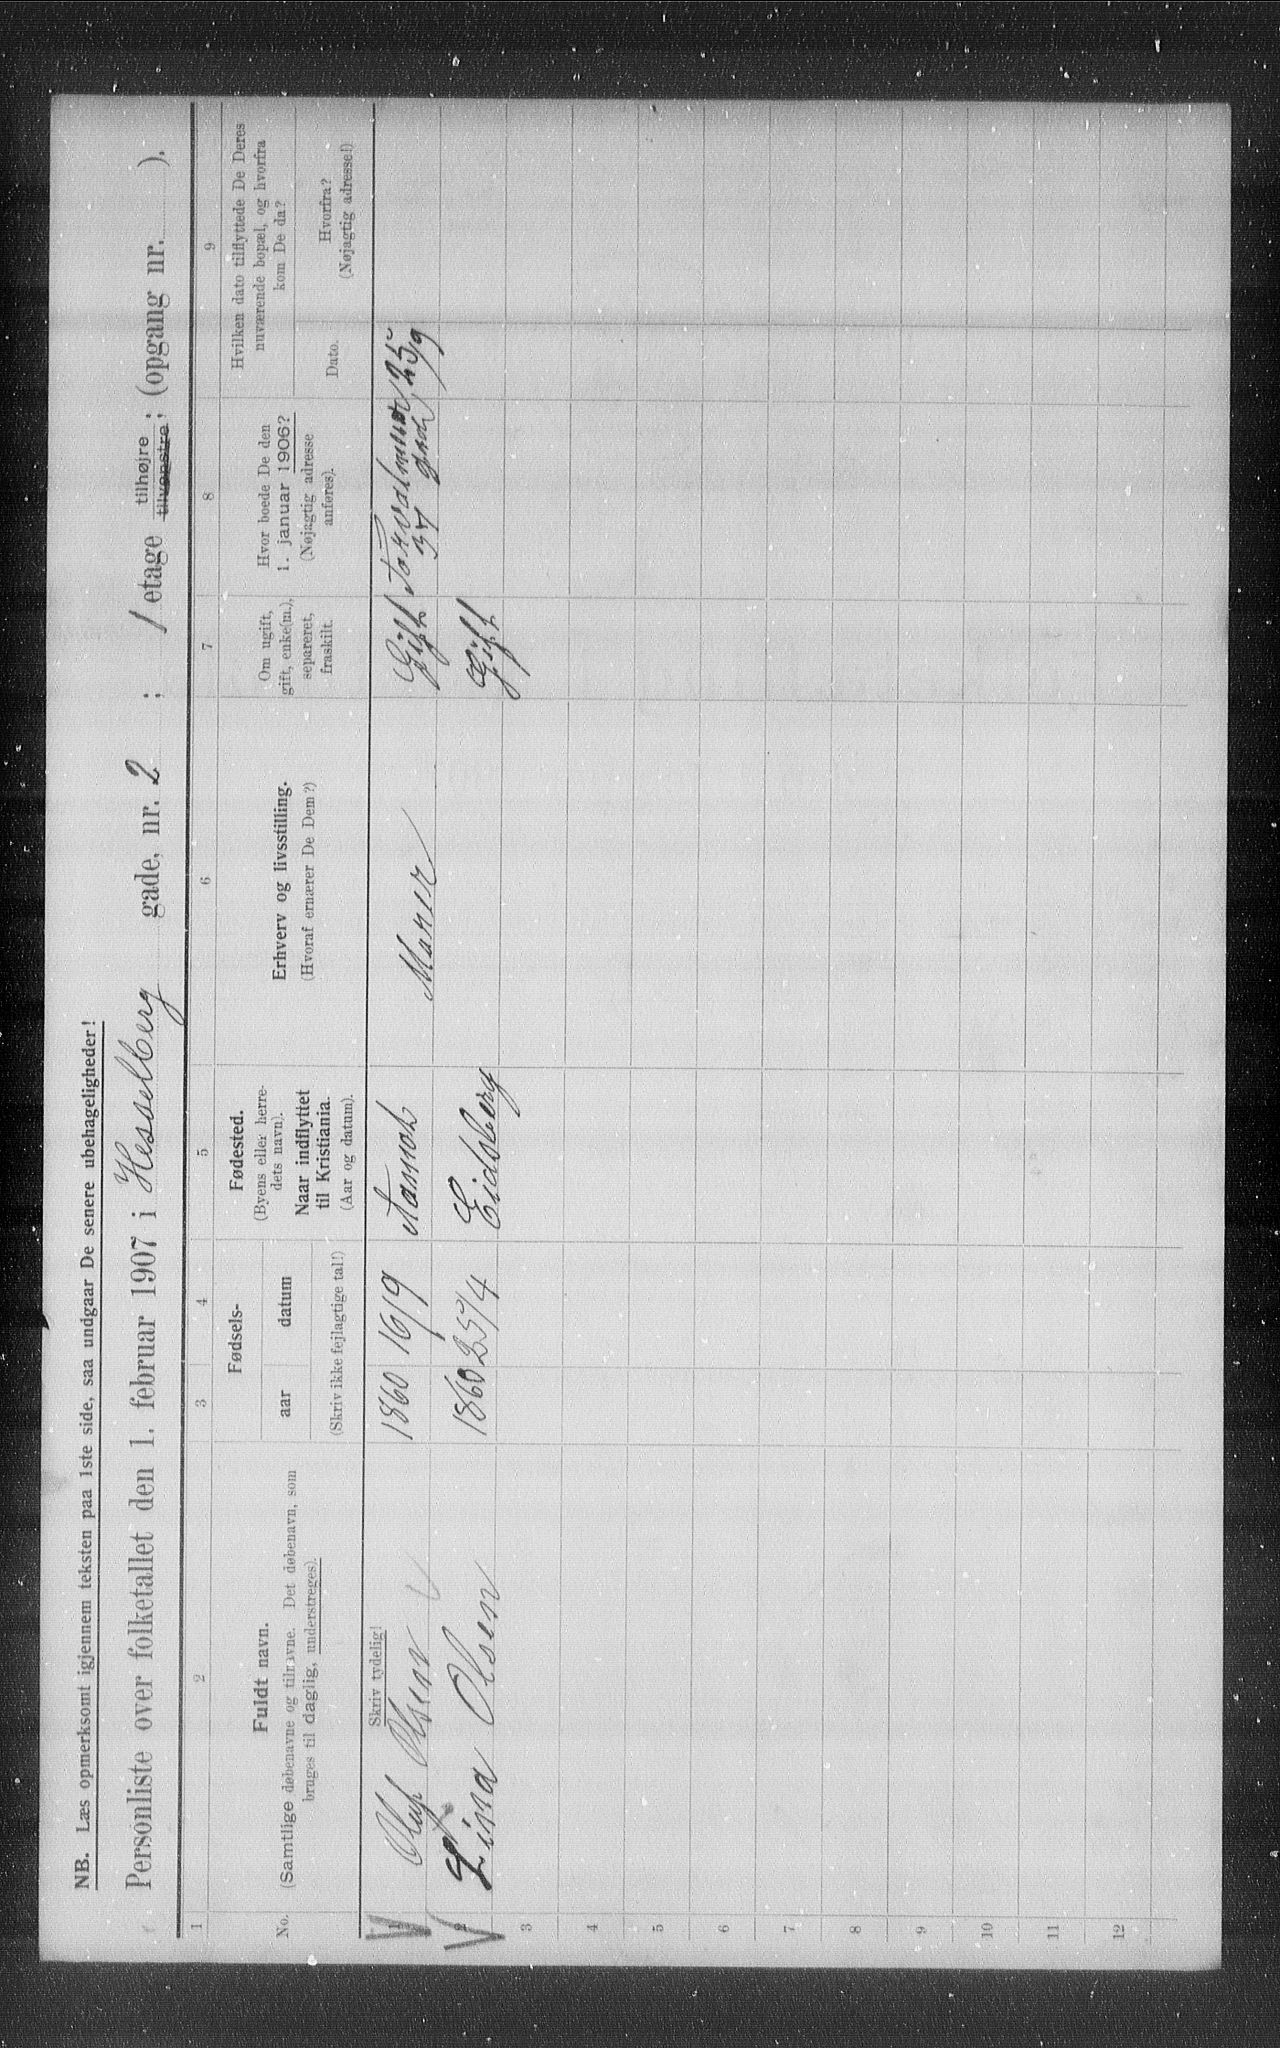 NB. Læs opmerksomt igjennem teksten paa 1ste side, saa undgaar De senere ubehageligheder!
Personliste over folketallet den 1. februar 1907 i Hesselberg gade, nr. 2 ; 1 etage tilhøjre ; tilvenstre ; (opgang nr. ).
1 2 3 4 5 6 7 8 9
No.
Fuldt navn.
(Samtlige døbenavne og tilnavne. Det døbenavn, som
bruges til daglig, understreges).
Fødsels-
aar datum
(Skriv ikke fejlagtige tal!)
Fødested.
(Byens eller herre-
dets navn).
Naar indflyttet
til Kristiania.
(Aar og datum).
Erhverv og livsstilling.
(Hvoraf ernærer De Dem?)
Om ugift,
gift, enke(m.),
separeret,
fraskilt.
Hvor boede De den
1. januar 1906?
(Nøjagtig adresse
anføres).
Hvilken dato tilflyttede De Deres
nuværende bopæl, og hvorfra
kom De da?
Dato.
Hvorfra?
(Nøjagtig adresse!)
Skriv tydelig!
1 Oluf Olsen 1860 16/9 Gift 25/9
37
2 Lina Olsen 1860 25/4 Eidsberg Gift
3
4
5
6
7
8
9
10
11
12